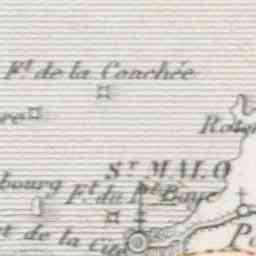 Ft. de la Conchée
re
St. MALO
bourg Ft. du Pt. Baye
t de la Cité